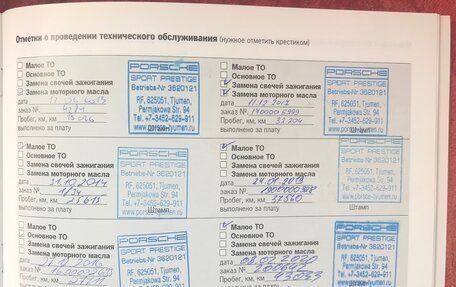 Отметки о проведении технического обслуживания (нужное отметить крестиком)
Малое ТО
Основное ТО
Замена свечей зажигания
Замена моторного масла
дата
заказ №
Пробег, км, км
выполнено за плату
PORSCHE
SPORT PRESTIGE
Betriebs-Nr 3620121
RF, 625051, Tjumen,
Permjakowa Str. 94
Tel. +7-3452-629-911
www.porsche-tyumen.ru
Малое ТО
Основное ТО
Замена свечей зажигания
Замена моторного масла
дата 11.12.2017
заказ №
Пробег, км, км 33 204
выполнено за плату
PORSCHE
SPORT PRESTIGE
Betriebs-Nr 3620121
RF, 625051, Tjumen,
Permjakowa Str. 94
Tel. +7-3452-629-911
Штамп
Малое ТО
Основное ТО
Замена свечей зажигания
Замена моторного масла
дата 31.10.2014
заказ №
Пробег, км, км 25615
выполнено за плату
PORSCHE
SPORT PRESTIGE
Betriebs-Nr 3620121
RF, 625051, Tjumen,
Permjakowa Str. 94
Tel. +7-3452-629-911
Штамп
Малое ТО
Основное ТО
Замена свечей зажигания
Замена моторного масла
дата 24.01.2019
заказ №
Пробег, км, км 37560
выполнено за плату
PORSCHE
SPORT PRESTIGE
Betriebs-Nr 3620121
RF, 625051, Tjumen,
Permjakowa Str. 94
Tel. +7-3452-629-911
Штамп
Малое ТО
Основное ТО
Замена свечей зажигания
Замена моторного масла
дата
заказ №
Пробег, км, км
PORSCHE
SPORT PRESTIGE
Betriebs-Nr 3620121
RF, 625051, Tjumen,
Permjakowa Str. 94
Малое ТО
Основное ТО
Замена свечей зажигания
Замена моторного масла
дата 08.02.2020
заказ №
Пробег, км, км
PORSCHE
SPORT PRESTIGE
Betriebs-Nr 3620121
RF, 625051, Tjumen,
Permjakowa Str. 94